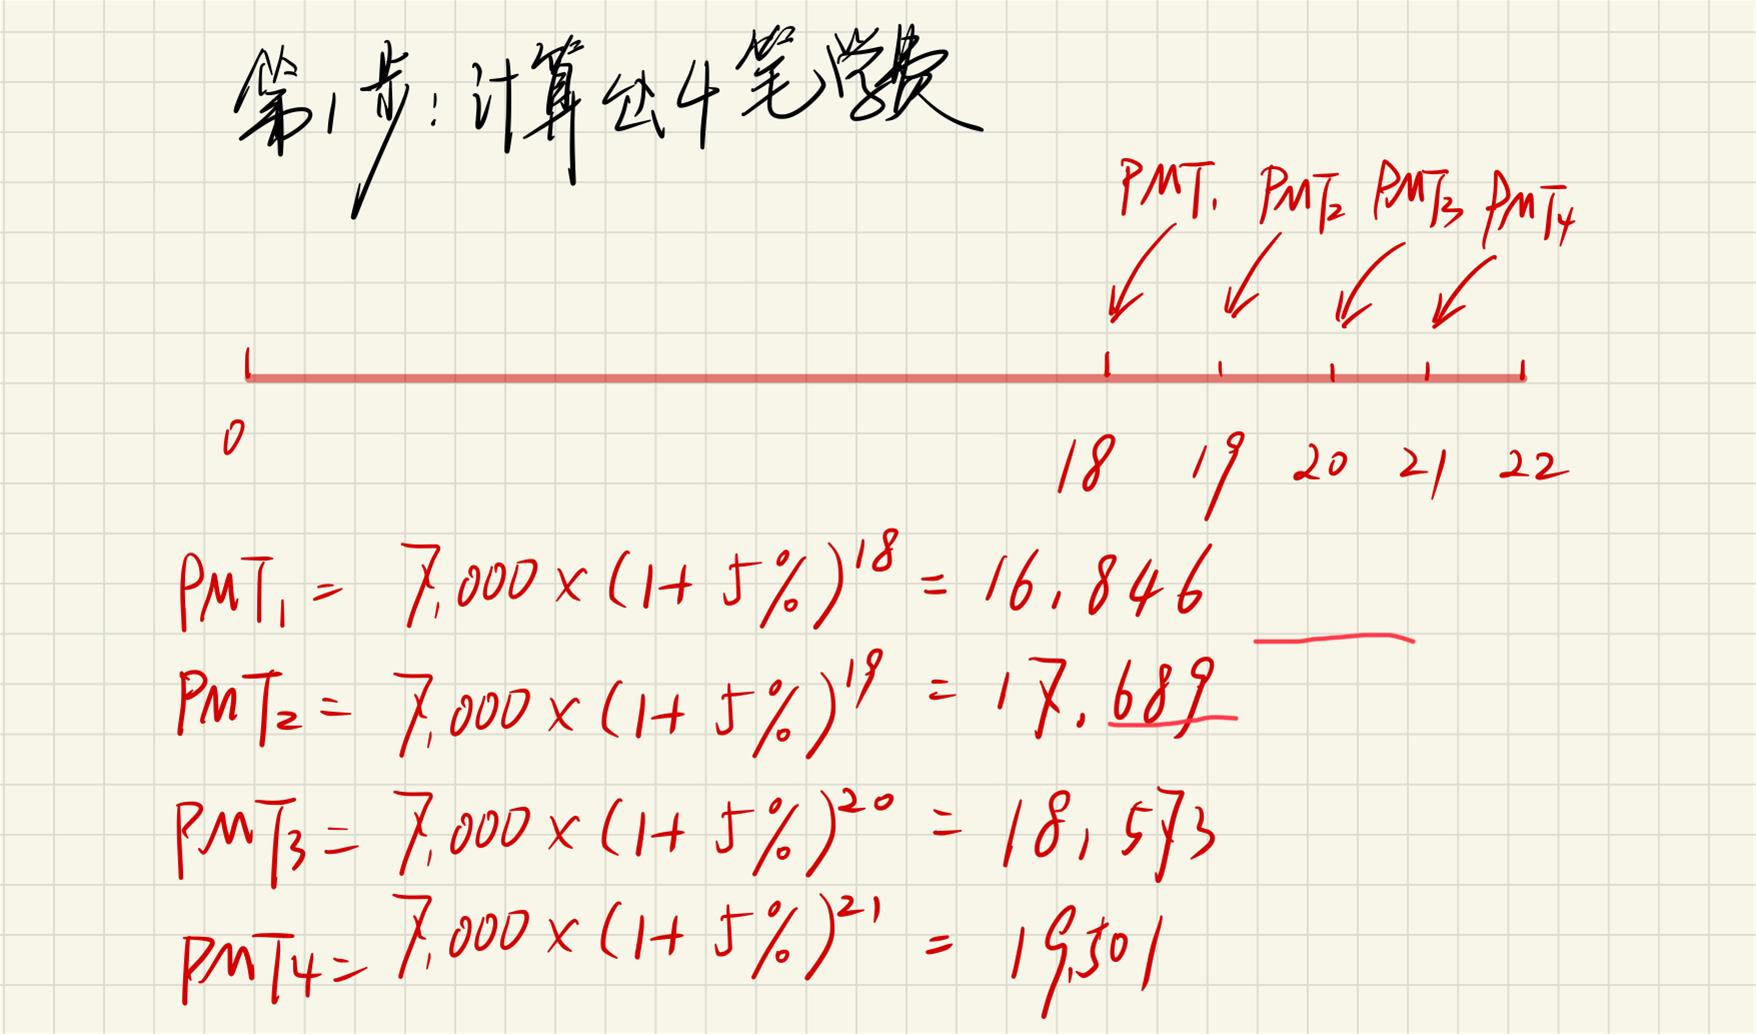 第1步:计算出4笔学费
PMT₁ PMT₂ PMT₃ PMT₄
0 18 19 20 21 22
PMT₁ = 7,000 × (1+5%)¹⁸ = 16,846
PMT₂ = 7,000 × (1+5%)¹⁹ = 17,689
PMT₃ = 7,000 × (1+5%)²⁰ = 18,573
PMT₄ = 7,000 × (1+5%)²¹ = 19,501